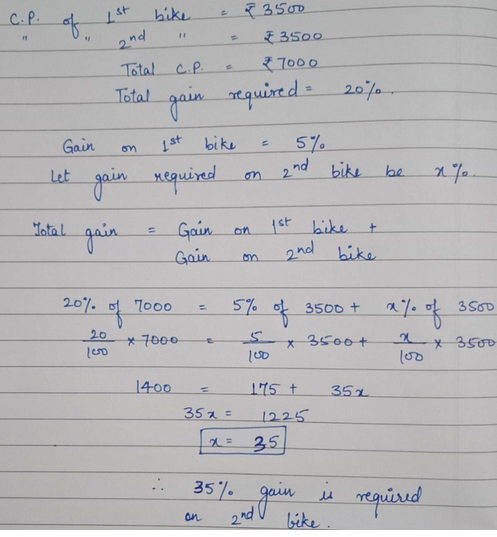 C.P. of 1st bike = ₹3500
" " 2nd " = ₹3500
Total C.P. = ₹7000
Total gain required = 20%.
Gain on 1st bike = 5%
Let gain required on 2nd bike be x%.
Total gain = Gain on 1st bike +
Gain on 2nd bike
20% of 7000 = 5% of 3500 + x% of 3500
20/100 × 7000 = 5/100 × 3500 + x/100 × 3500
1400 = 175 + 35x
35x = 1225
x = 35
∴ 35% gain is required
on 2nd bike.